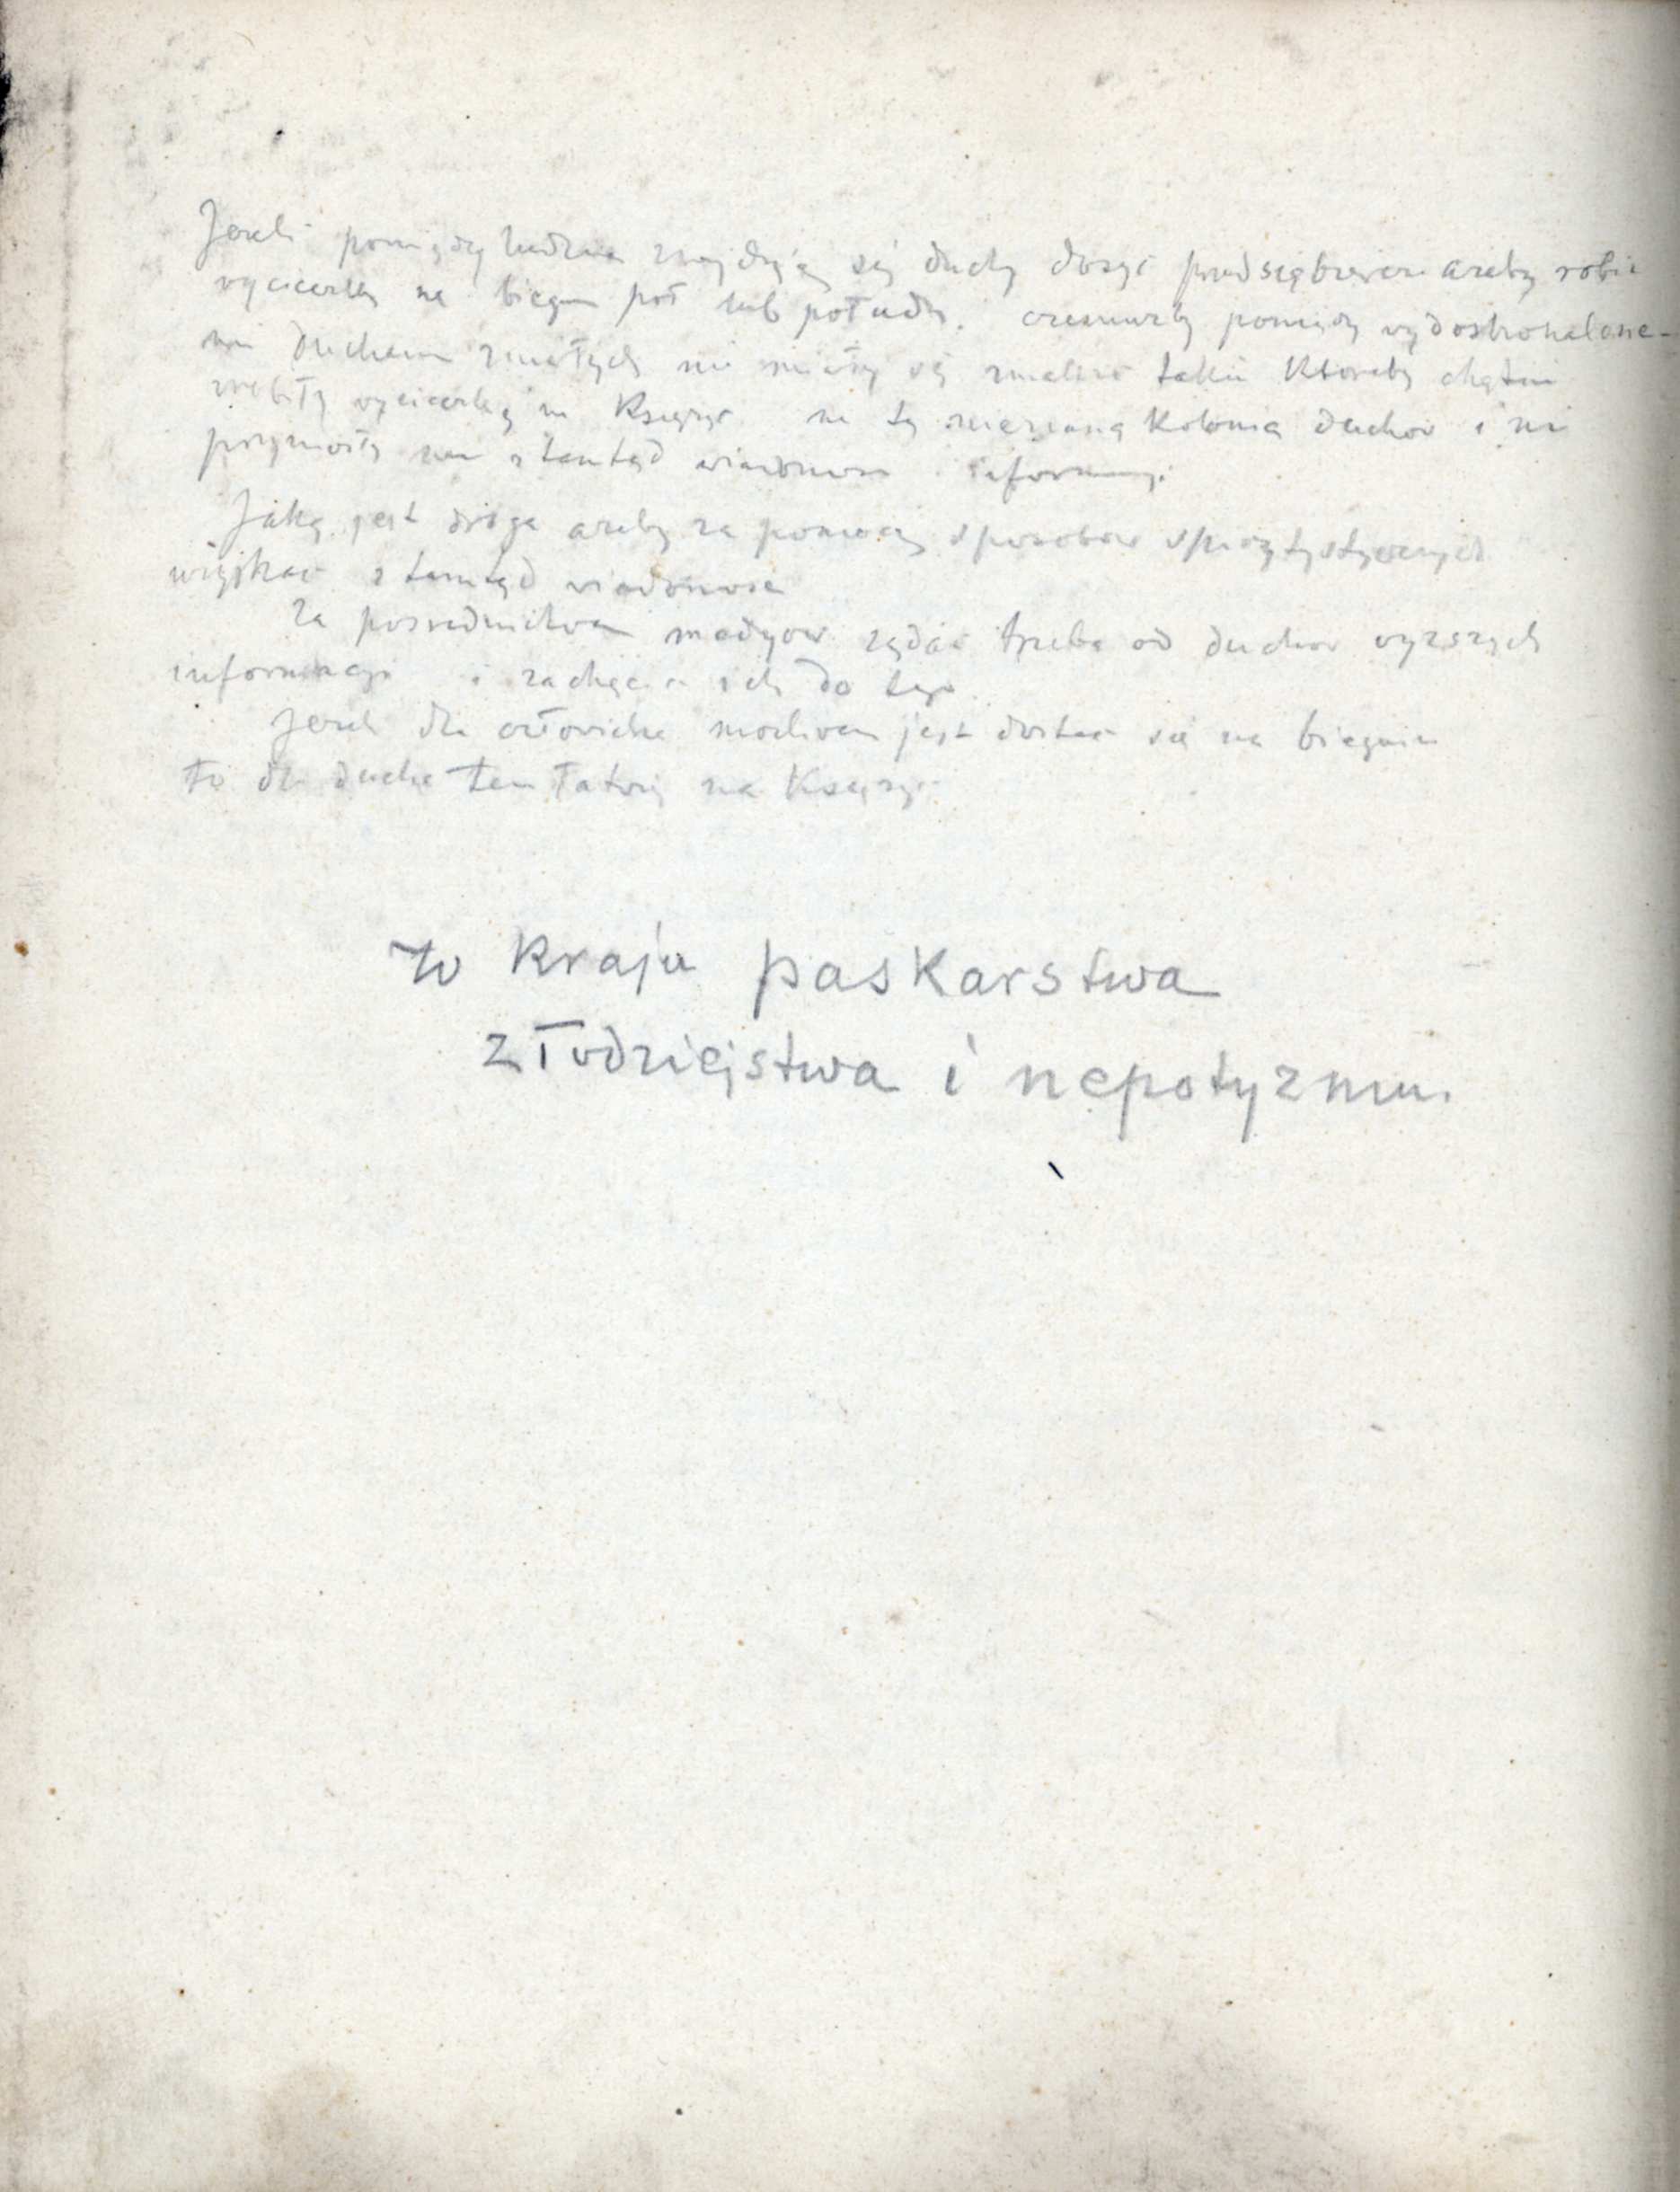 Jezeli pomiędzy ludzmi znajdują się duchy dosyć przedsiębiorcze azeby robic
wycieczkę na biegun poł lub połudn. czemuzby pomiędzy wydoskonalone-
mi duchami zmarłych nie miały się znalezc takie ktoreby chętnie
zrobiły wycieczkę na Księzyc na tę kolonią duchow i nie
przyniosły nam stamtąd wiadomosci i informacji
Jaką jest droga azeby za pomocą sposobow spirytystycznych
wzyskac stamtąd wiadomosci
Za posrednictwem medyow ządac trzeba od duchow wyzszych
informacji i zachęcac ich do tego.
Jezeli dla człowieka mozliwem jest dostac się na biegun
to dla ducha tem łatwiej na Księzyc
W Kraju paskarstwa
złodziejstwa i nepotyzmu.